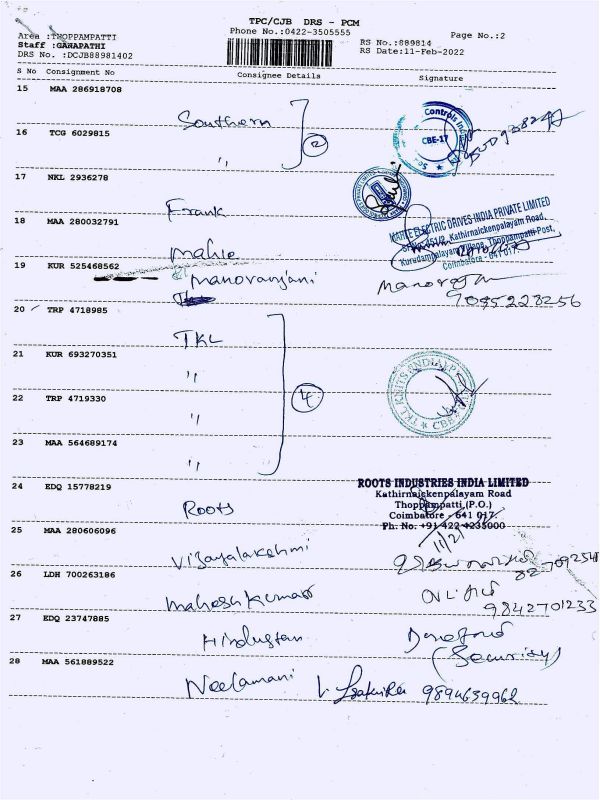 TPC/CJB DRS - PCM
Area :THOPPAMPATTI Phone No.:0422-3505555 Page No.:2
Staff :GANAPATHI RS No.:889814
DRS No. :DCJB88981402 RS Date:11-Feb-2022
S No Consignment No Consignee Details Signature
15 MAA 286918708
Southern
Controls
CBE-17
16 TCG 6029815
"
2
17 NKL 2936278
Frank
KAHLE ELECTRIC DRIVES INDIA PRIVATE LIMITED
SF.No. 451/2, Kathirnaickenpalayam Road,
Kurudampalayam Village, Thoppampatti Post,
Coimbatore - 641 017.
18 MAA 280032791
Mahle
19 KUR 525468562
Manoranjani
9095228256
20 TRP 4718985
TKL
21 KUR 693270351
"
4
TKL KNITS INDIA
CBE
22 TRP 4719330
"
23 MAA 564689174
"
24 EDQ 15778219
Roots
ROOTS INDUSTRIES INDIA LIMITED
Kathirnaickenpalayam Road
Thoppampatti (P.O.)
Coimbatore - 641 017.
Ph. No. +91 422 4235000
11/2
25 MAA 280606096
Vijayalakshmi
26 LDH 700263186
Maheshkumar
9842701233
27 EDQ 23747885
Hindustan
(Security)
28 MAA 561889522
Neelamani
9894639962